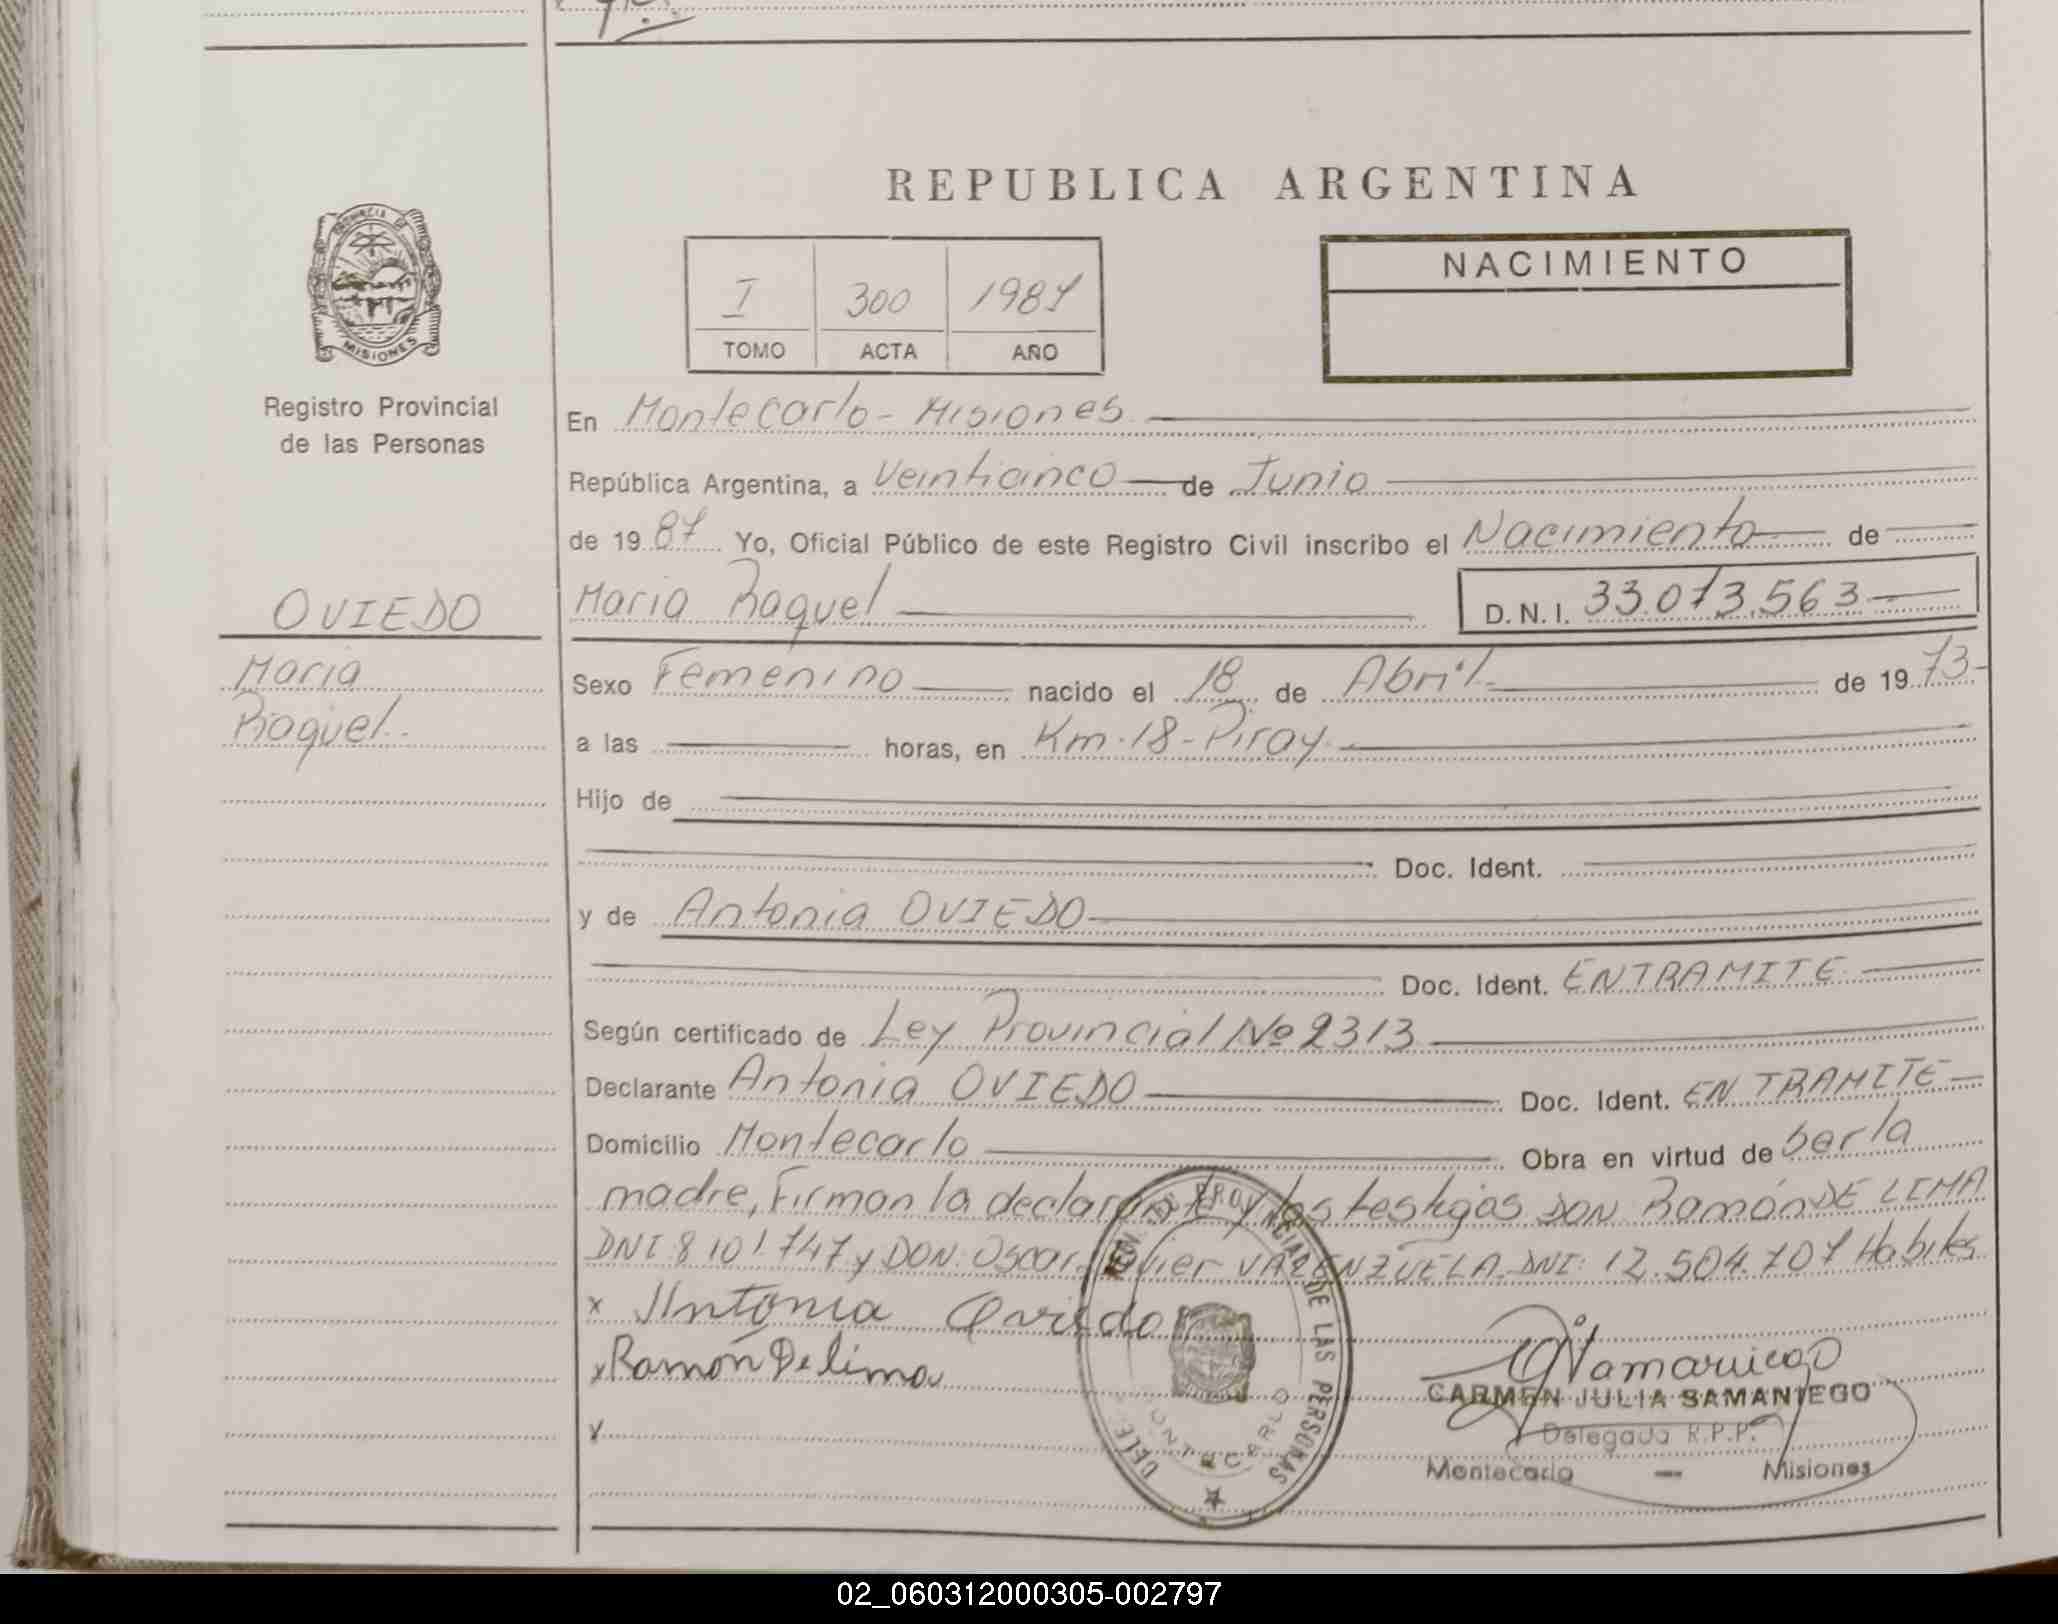 REPUBLICA ARGENTINA
PROVINCIA DE
MISIONES
Registro Provincial
de las Personas
I 300 1987
TOMO ACTA AÑO
NACIMIENTO
En Montecarlo - Misiones
República Argentina, a Veinticinco de Junio
de 1987 Yo, Oficial Público de este Registro Civil inscribo el Nacimiento de
OVIEDO
Maria
Raquel.
Maria Raquel
D.N.I. 33.073.563
Sexo Femenino nacido el 18 de Abril de 1973
a las horas, en Km. 18 - Piray
Hijo de
Doc. Ident.
y de Antonia OVIEDO
Doc. Ident. EN TRAMITE
Según certificado de Ley Provincial Nº 2313
Declarante Antonia OVIEDO Doc. Ident. EN TRAMITE
Domicilio Montecarlo Obra en virtud de serla
madre, Firman la declarante y los testigos DON Ramón DE LIMA
DNI 8 101 747 y DON. Oscar Javier VALENZUELA DNI: 12.504.707 Habiles
x Antonia Oviedo
x Ramón De lima
CARMEN JULIA SAMANIEGO
Delegada R.P.P.
Montecarlo — Misiones
PROVINCIAL DE LAS PERSONAS
MONTECARLO
02_060312000305-002797